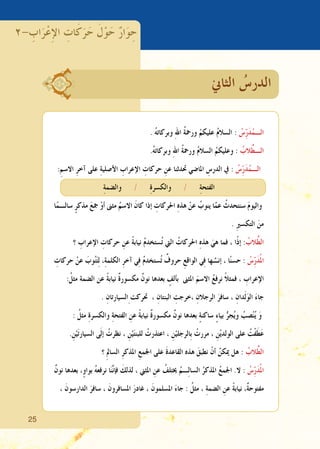 ٢-حِوَارٌ حَوْلَ حَرَكَاتِ الْإِعْرَابِ
الدرسُ الثانيْ
المُدَرِّسُ : السلامُ عليكمْ ورحمةُ اللهِ وبركاتُهُ .
الطُّلابُ : وعليكمُ السلامُ ورحمةُ اللهِ وبركاتُهُ.
المُدَرِّسُ : في الدرسِ الماضي تحدثنا عن حركاتِ الإعرابِ الأصليةِ على آخرِ الاسمِ:
الفتحةِ / والكسرةِ / والضمةِ
واليومَ سنتحدثُ عمَّا ينوبُ عَنْ هذهِ الحركاتِ إذا كانَ الاسمُ مثنى أَوْ جمعَ مذكرٍ سالمًا
منَ التكسيرِ .
الطُّلابُ : إذًا ، فما هيَ هذه الحركاتُ التي تُستخدمُ نيابةً عن حركاتِ الإعرابِ ؟
المُدَرِّسُ : حسنًا ، إنَّها في الواقعِ حروفٌ تُستخدمُ في آخرِ الكلمةِ، لِتَنُوبَ عنْ حركاتِ
الإعرابِ ، فمثلًا نرفعُ الاسمَ المثنى بألفٍ بعدها نونٌ مكسورةٌ نيابةً عن الضمة مثلُ:
جاءَ الوَلَدانِ ، سافرَ الرجلانِ ،خرجت البنتانِ ، تحركت السيارتان .
وَ يُنْصَبُ وَيُجَرُّ بياءٍ ساكنةٍ بعدها نونٌ مكسورةٌ نيابةً عن الفتحةِ والكسرةِ مثلُ :
عَطَفْتُ على الولدَيْنِ ، مررتُ بالرجلَيْنِ ، اعتذرتُ للبنتَيْنِ ، نظرتُ إلَى السيارتَيْنِ
الطُّلابُ : هل يمكنُ أنْ نطبقَ هذه القاعدةَ على الجمعِ المذكرِ السالمِ ؟
المُدَرِّسُ : لا. الجمعُ المذكرُ السالمُ يختلفُ عن المثنى ، لذلكَ فإنَّنا نرفعهُ بواوٍ، بعدها نونٌ
مفتوحةٌ، نيابةً عن الضمةِ ، مثلُ : جاءَ المسلمونَ ، غادرَ المسافرونَ ، سافرَ الدارسونَ ،
25